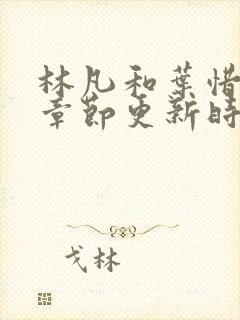 林凡和葉惜
章節更新時
戈林